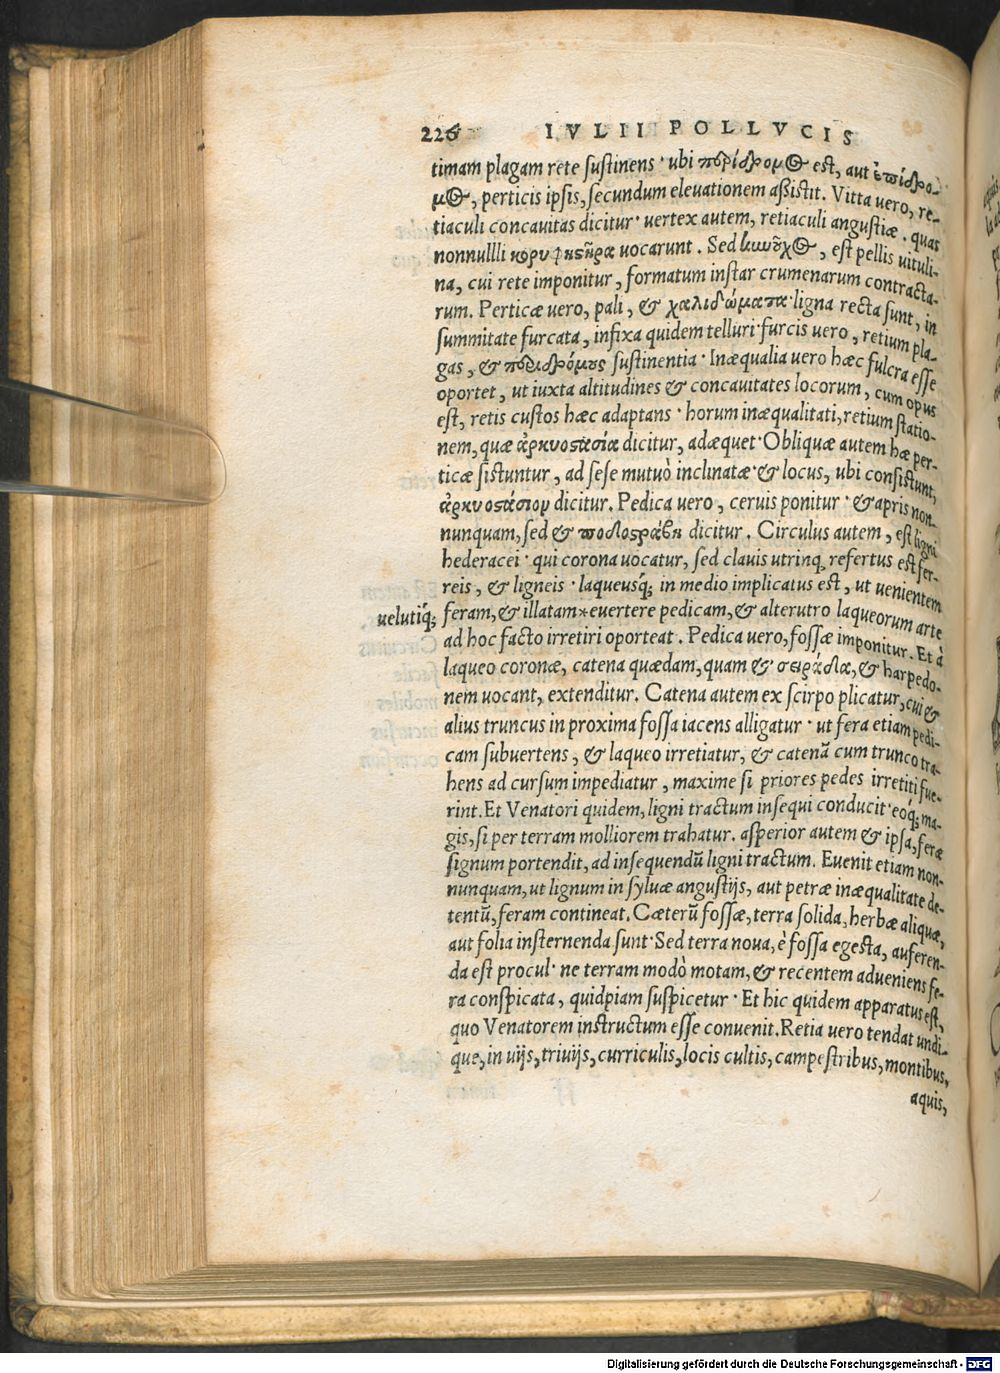 226 IVLII POLLVCIS
timam plagam rete sustinens · ubi περίδρομΘ est, aut ἐπίδρο-
μΘ, perticis ipsis, secundum eleuationem aßistit. Vitta uero, re-
tiaculi concauitas dicitur · uertex autem, retiaculi angustiæ · quas
nonnullli κορυφιστῆρα uocarunt. Sed , est pellis uituli-
na, cui rete imponitur, formatum instar crumenarum contracta-
rum. Perticæ uero, pali, & χαλιδώματα · ligna recta sunt, in
summitate furcata, infixa quidem telluri · furcis uero, retium pla-
gas, & περιδρόμους sustinentia · Inæqualia uero hæc fulcra esse
oportet, ut iuxta altitudines & concauitates locorum, cum opus
est, retis custos hæc adaptans · horum inæqualitati, retium statio-
nem, quæ ἀρκυοστασία dicitur, adæquet · Obliquæ autem hæ per-
ticæ sistuntur, ad sese mutuò inclinatæ · & locus, ubi consistunt,
ἀρκυοστάσιον dicitur. Pedica uero, ceruis ponitur · & apris non-
nunquam, sed & ποδοστράβη dicitur. Circulus autem, est ligni
hederacei · qui corona uocatur, sed clauis utrinq; refertus est fer-
reis, & ligneis · laqueusq́; in medio implicatus est, ut uenientem
uelutiq́; feram, & illatam * euertere pedicam, & alterutro laqueorum arte
ad hoc facto irretiri oporteat. Pedica uero, fossæ imponitur. Et à
laqueo coronæ, catena quædam, quam & σειράδα, & harpedo-
nem uocant, extenditur. Catena autem ex scirpo plicatur, cui &
alius truncus in proxima fossa iacens alligatur · ut fera etiam pedi-
cam subuertens, & laqueo irretiatur, & catenā cum trunco tra-
hens ad cursum impediatur, maxime si priores pedes irretiti fue-
rint. Et Venatori quidem, ligni tractum insequi conducit · eoq́; ma-
gis, si per terram molliorem trahatur. asperior autem & ipsa, feræ
signum portendit, ad insequendū ligni tractum. Euenit etiam non-
nunquam, ut lignum in syluæ angustijs, aut petræ inæqualitate de-
tentū, feram contineat. Cæterū fossæ, terra solida, herbæ aliquæ,
aut folia insternenda sunt · Sed terra noua, è fossa egesta, auferen-
da est procul · ne terram modò motam, & recentem adueniens fe-
ra conspicata, quidpiam suspicetur · Et hic quidem apparatus est,
quo Venatorem instructum esse conuenit. Retia uero tendat undi-
que, in uijs, triuijs, curriculis, locis cultis, campestribus, montibus,
aquis,
Digitalisierung gefördert durch die Deutsche Forschungsgemeinschaft - DFG